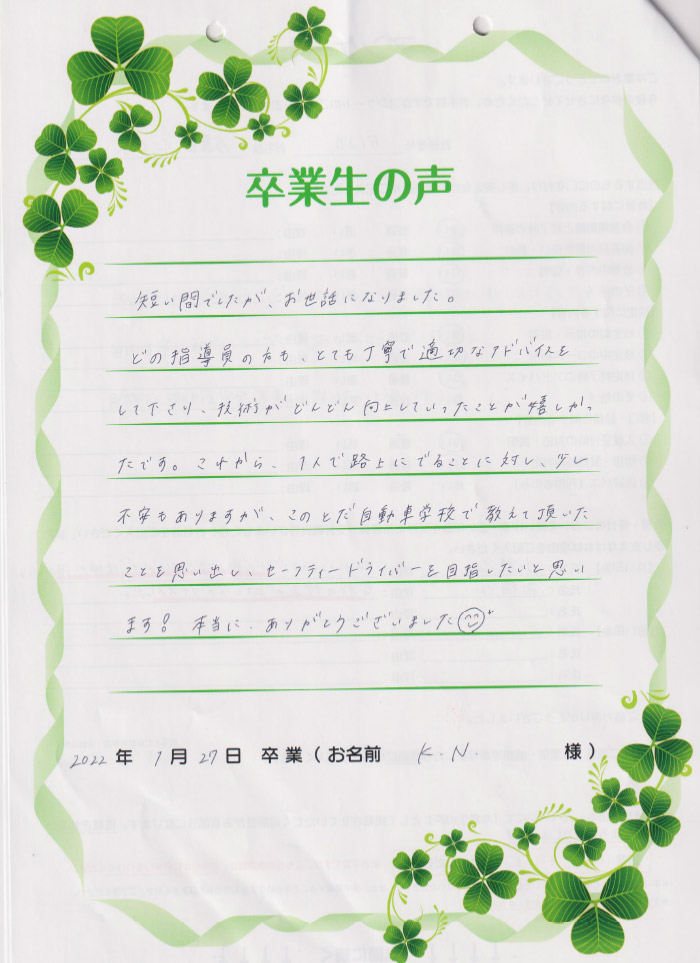 卒業生の声
短い間でしたが、お世話になりました。
どの指導員の方も、とても丁寧で適切なアドバイスを
して下さり、技術がどんどん向上していったことが嬉しかっ
たです。これから、1人で路上にでることに対し、少し
不安もありますが、このとだ自動車学校で教えて頂いた
ことを思い出し、セーフティードライバーを目指したいと思い
ます! 本当に、ありがとうございました
2022年 1月27日 卒業(お名前 K.N. 様)